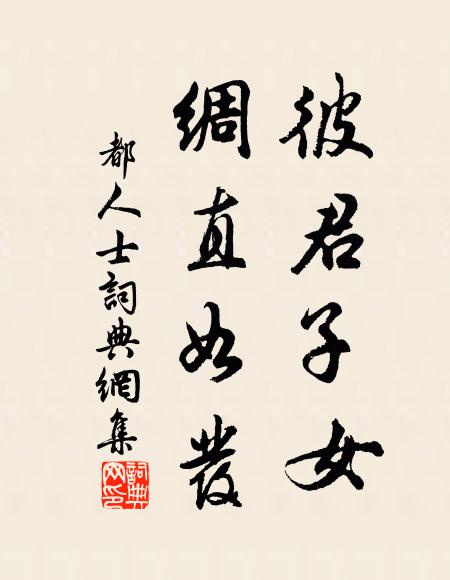 彼君子女
綢直如發
都人士詞典網集
詞典網印